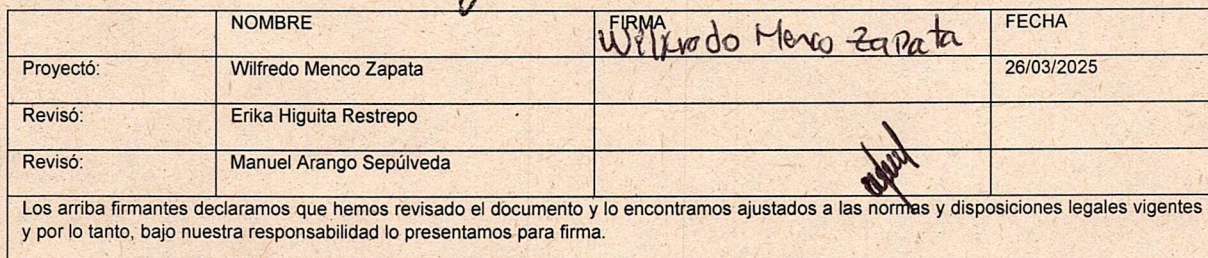 NOMBRE FIRMA FECHA
Wilfredo Menco Zapata
Proyectó: Wilfredo Menco Zapata 26/03/2025
Revisó: Erika Higuita Restrepo
Revisó: Manuel Arango Sepúlveda
Los arriba firmantes declaramos que hemos revisado el documento y lo encontramos ajustados a las normas y disposiciones legales vigentes
y por lo tanto, bajo nuestra responsabilidad lo presentamos para firma.